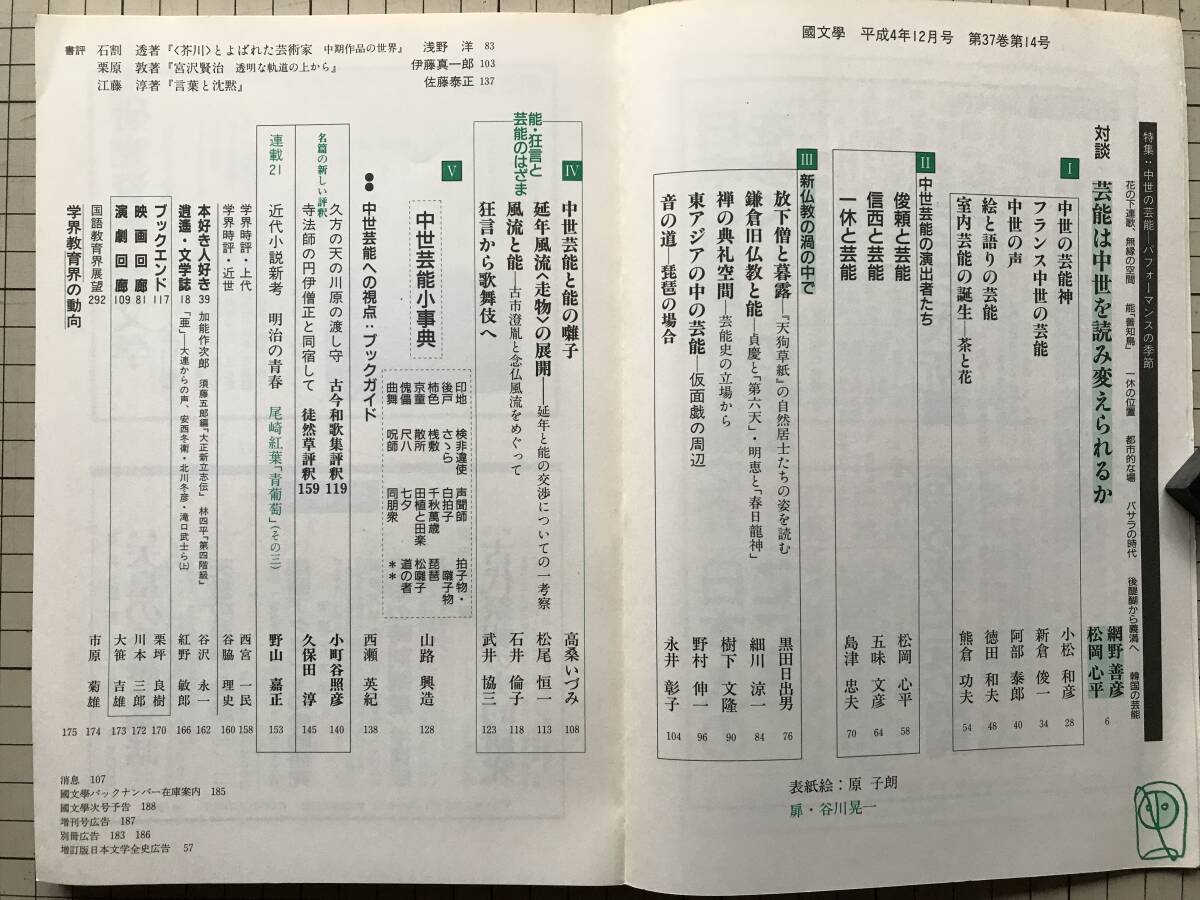 國文學 平成4年12月号 第37巻第14号
特集：中世の芸能―パフォーマンスの季節
花の下連歌、無縁の空間 能「善知鳥」 一休の位置 都市的な場 バサラの時代 後醍醐から義満へ 韓国の芸能
対談 芸能は中世を読み変えられるか 網野善彦 松岡心平 6
I
中世の芸能神 小松和彦 28
フランス中世の芸能 新倉俊一 34
中世の声 阿部泰郎 40
絵と語りの芸能 徳田和夫 48
室内芸能の誕生―茶と花 熊倉功夫 54
II 中世芸能の演出者たち
俊頼と芸能 松岡心平 58
信西と芸能 五味文彦 64
一休と芸能 島津忠夫 70
III 新仏教の渦の中で
放下僧と暮露―『天狗草紙』の自然居士たちの姿を読む 黒田日出男 76
鎌倉旧仏教と能―貞慶と「第六天」・明恵と「春日龍神」 細川涼一 84
禅の典礼空間―芸能史の立場から 樹下文隆 90
東アジアの中の芸能―仮面戯の周辺 野村伸一 96
音の道―琵琶の場合 永井彰子 104
表紙絵：原 子朗
扉・谷川晃一
書評 石割 透著『〈芥川〉とよばれた芸術家 中期作品の世界』 浅野 洋 83
栗原 敦著『宮沢賢治 透明な軌道の上から』 伊藤真一郎 103
江藤 淳著『言葉と沈黙』 佐藤泰正 137
IV
能・狂言と芸能のはざま
中世芸能と能の囃子 高桑いづみ 108
延年風流〈走物〉の展開―延年と能の交渉についての一考察 松尾恒一 113
風流と能―古市澄胤と念仏風流をめぐって 石井倫子 118
狂言から歌舞伎へ 武井協三 123
V
中世芸能小事典 山路興造 128
印地 検非違使 声聞師 拍子物・囃子物
後戸 さゝら 白拍子
柿色 桟敷 千秋萬歳 琵琶
京童 散所 田植と田楽 松囃子
傀儡 尺八 七夕 道の者
曲舞 呪師 同朋衆 ＊＊
●●中世芸能への視点：ブックガイド 西瀬英紀 138
名篇の新しい評釈
久方の天の川原の渡し守 古今和歌集評釈119 小町谷照彦 140
寺法師の円伊僧正と同宿して 徒然草評釈159 久保田 淳 145
連載21 近代小説新考 明治の青春 尾崎紅葉「青葡萄」（その三） 野山嘉正 153
学界時評・上代 西宮一民 158
学界時評・近世 谷脇理史 160
本好き人好き39 加能作次郎 須藤五郎編「大正新立志伝」 林四平「第四階級」 谷沢永一 162
逍遙・文学誌18 「亜」―大連からの声、安西冬衛・北川冬彦・滝口武士ら（上） 紅野敏郎 166
ブックエンド117 栗坪良樹 170
映画回廊81 川本三郎 172
演劇回廊109 大笹吉雄 173
国語教育界展望292 市原菊雄 174
学界教育界の動向 175
消息 107
國文學バックナンバー在庫案内 185
國文學次号予告 188
増刊号広告 187
別冊広告 183 186
増訂版日本文学全史広告 57